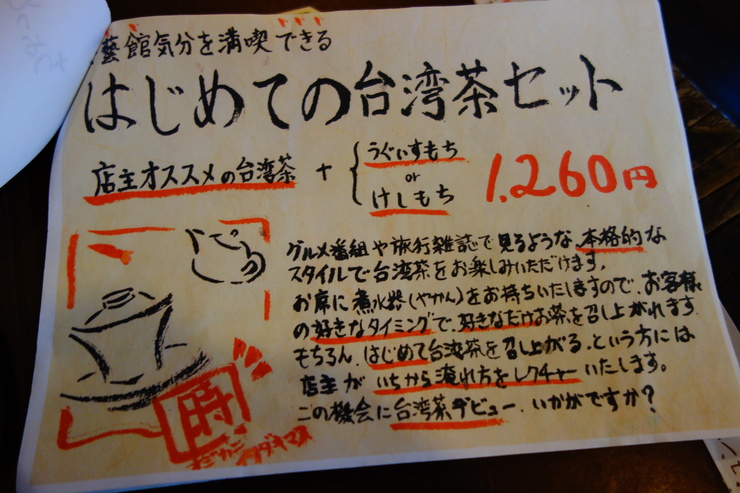 藝館気分を満喫できる
はじめての台湾茶セット
店主オススメの台湾茶 + { うぐいすもち or けしもち 1.260円
グルメ番組や旅行雑誌で見るような、本格的な
スタイルで台湾茶をお楽しみいただけます。
お席に煮水器(やかん)をお持ちいたしますので、お客様
の好きなタイミングで、好きなだけお茶を召し上がれます。
もちろん、はじめて台湾茶を召し上がる、という方には
店主がいちから淹れ方をレクチャーいたします。
この機会に台湾茶デビュー、いかがですか?
時
オジカン
イタダキマス